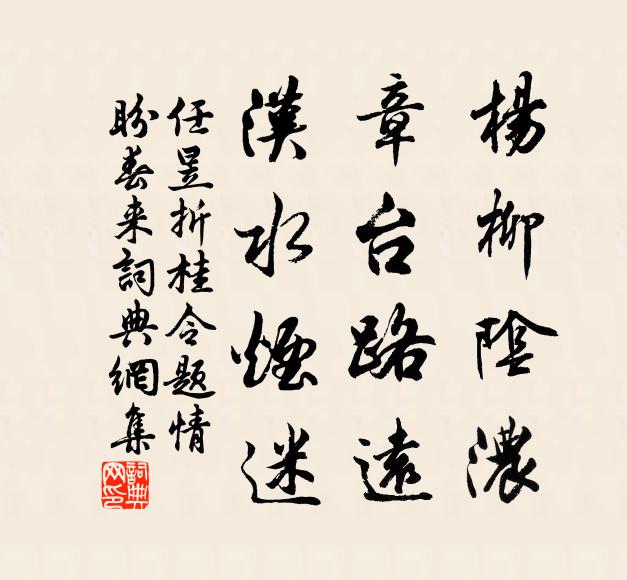 楊柳陰濃
章台路遠
漢水煙迷
任昱折桂令題情
盼春来詞典網集
詞典
网印